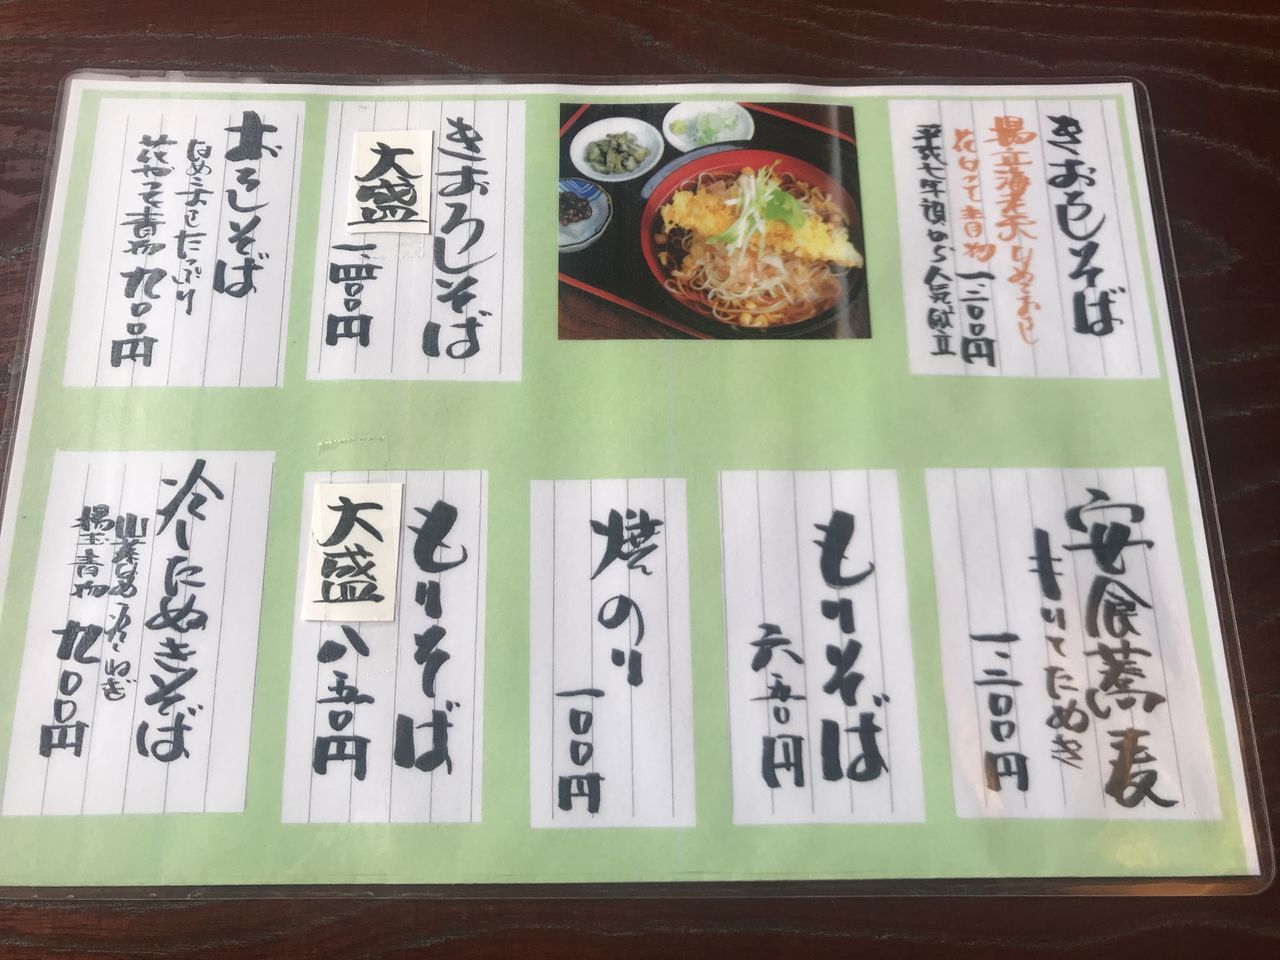 きおろしそば
揚立海老天なめこおろし
花かつを青物 一、二〇〇円
平成七年頃から人気献立
きおろしそば
大盛
一、四〇〇円
おろしそば
なめこおろしたっぷり
花かつを青物 九〇〇円
安食蕎麦
もりそば
六五〇円
焼のり
一〇〇円
もりそば
大盛
八五〇円
冷したぬきそば
揚玉青物 九〇〇円